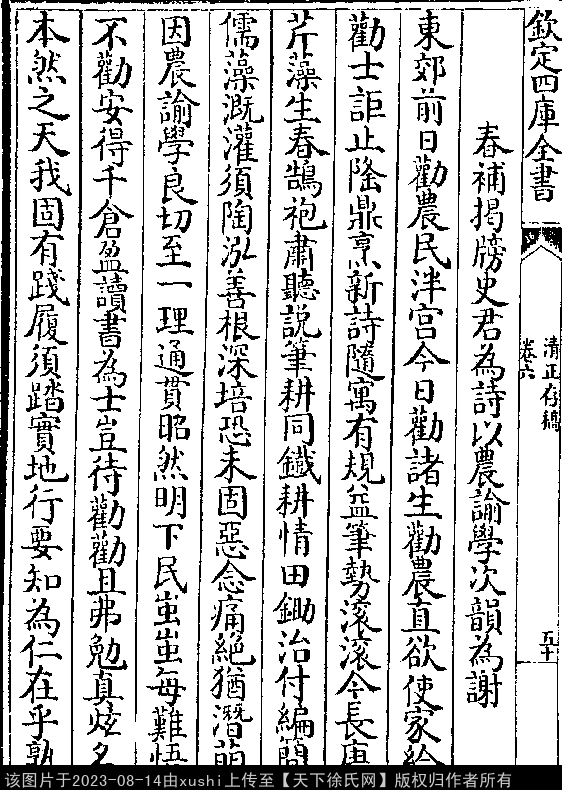 欽定四庫全書
清正存稿
卷六
五十
春補揭牓史君為詩以農諭學次韻為謝
東郊前日勸農民泮宮今日勸諸生勸農直欲使家給
勸士詎止隆鼎烹新詩隨寓有規益筆勢滚滚今長庚
芹藻生春鵠袍肅聽說筆耕同鐵耕情田鋤治付編簡
儒藻溉灌須陶泓善根深培恐未固惡念痛絶猶潛萌
因農諭學良切至一理通貫昭然明下民蚩蚩每難悟
不勸安得千倉盈讀書為士豈待勸勸且弗勉真炫名
本然之天我固有踐履須踏實地行要知為仁在乎熟
该图片于2023-08-14由xushi上传至【天下徐氏网】版权归作者所有